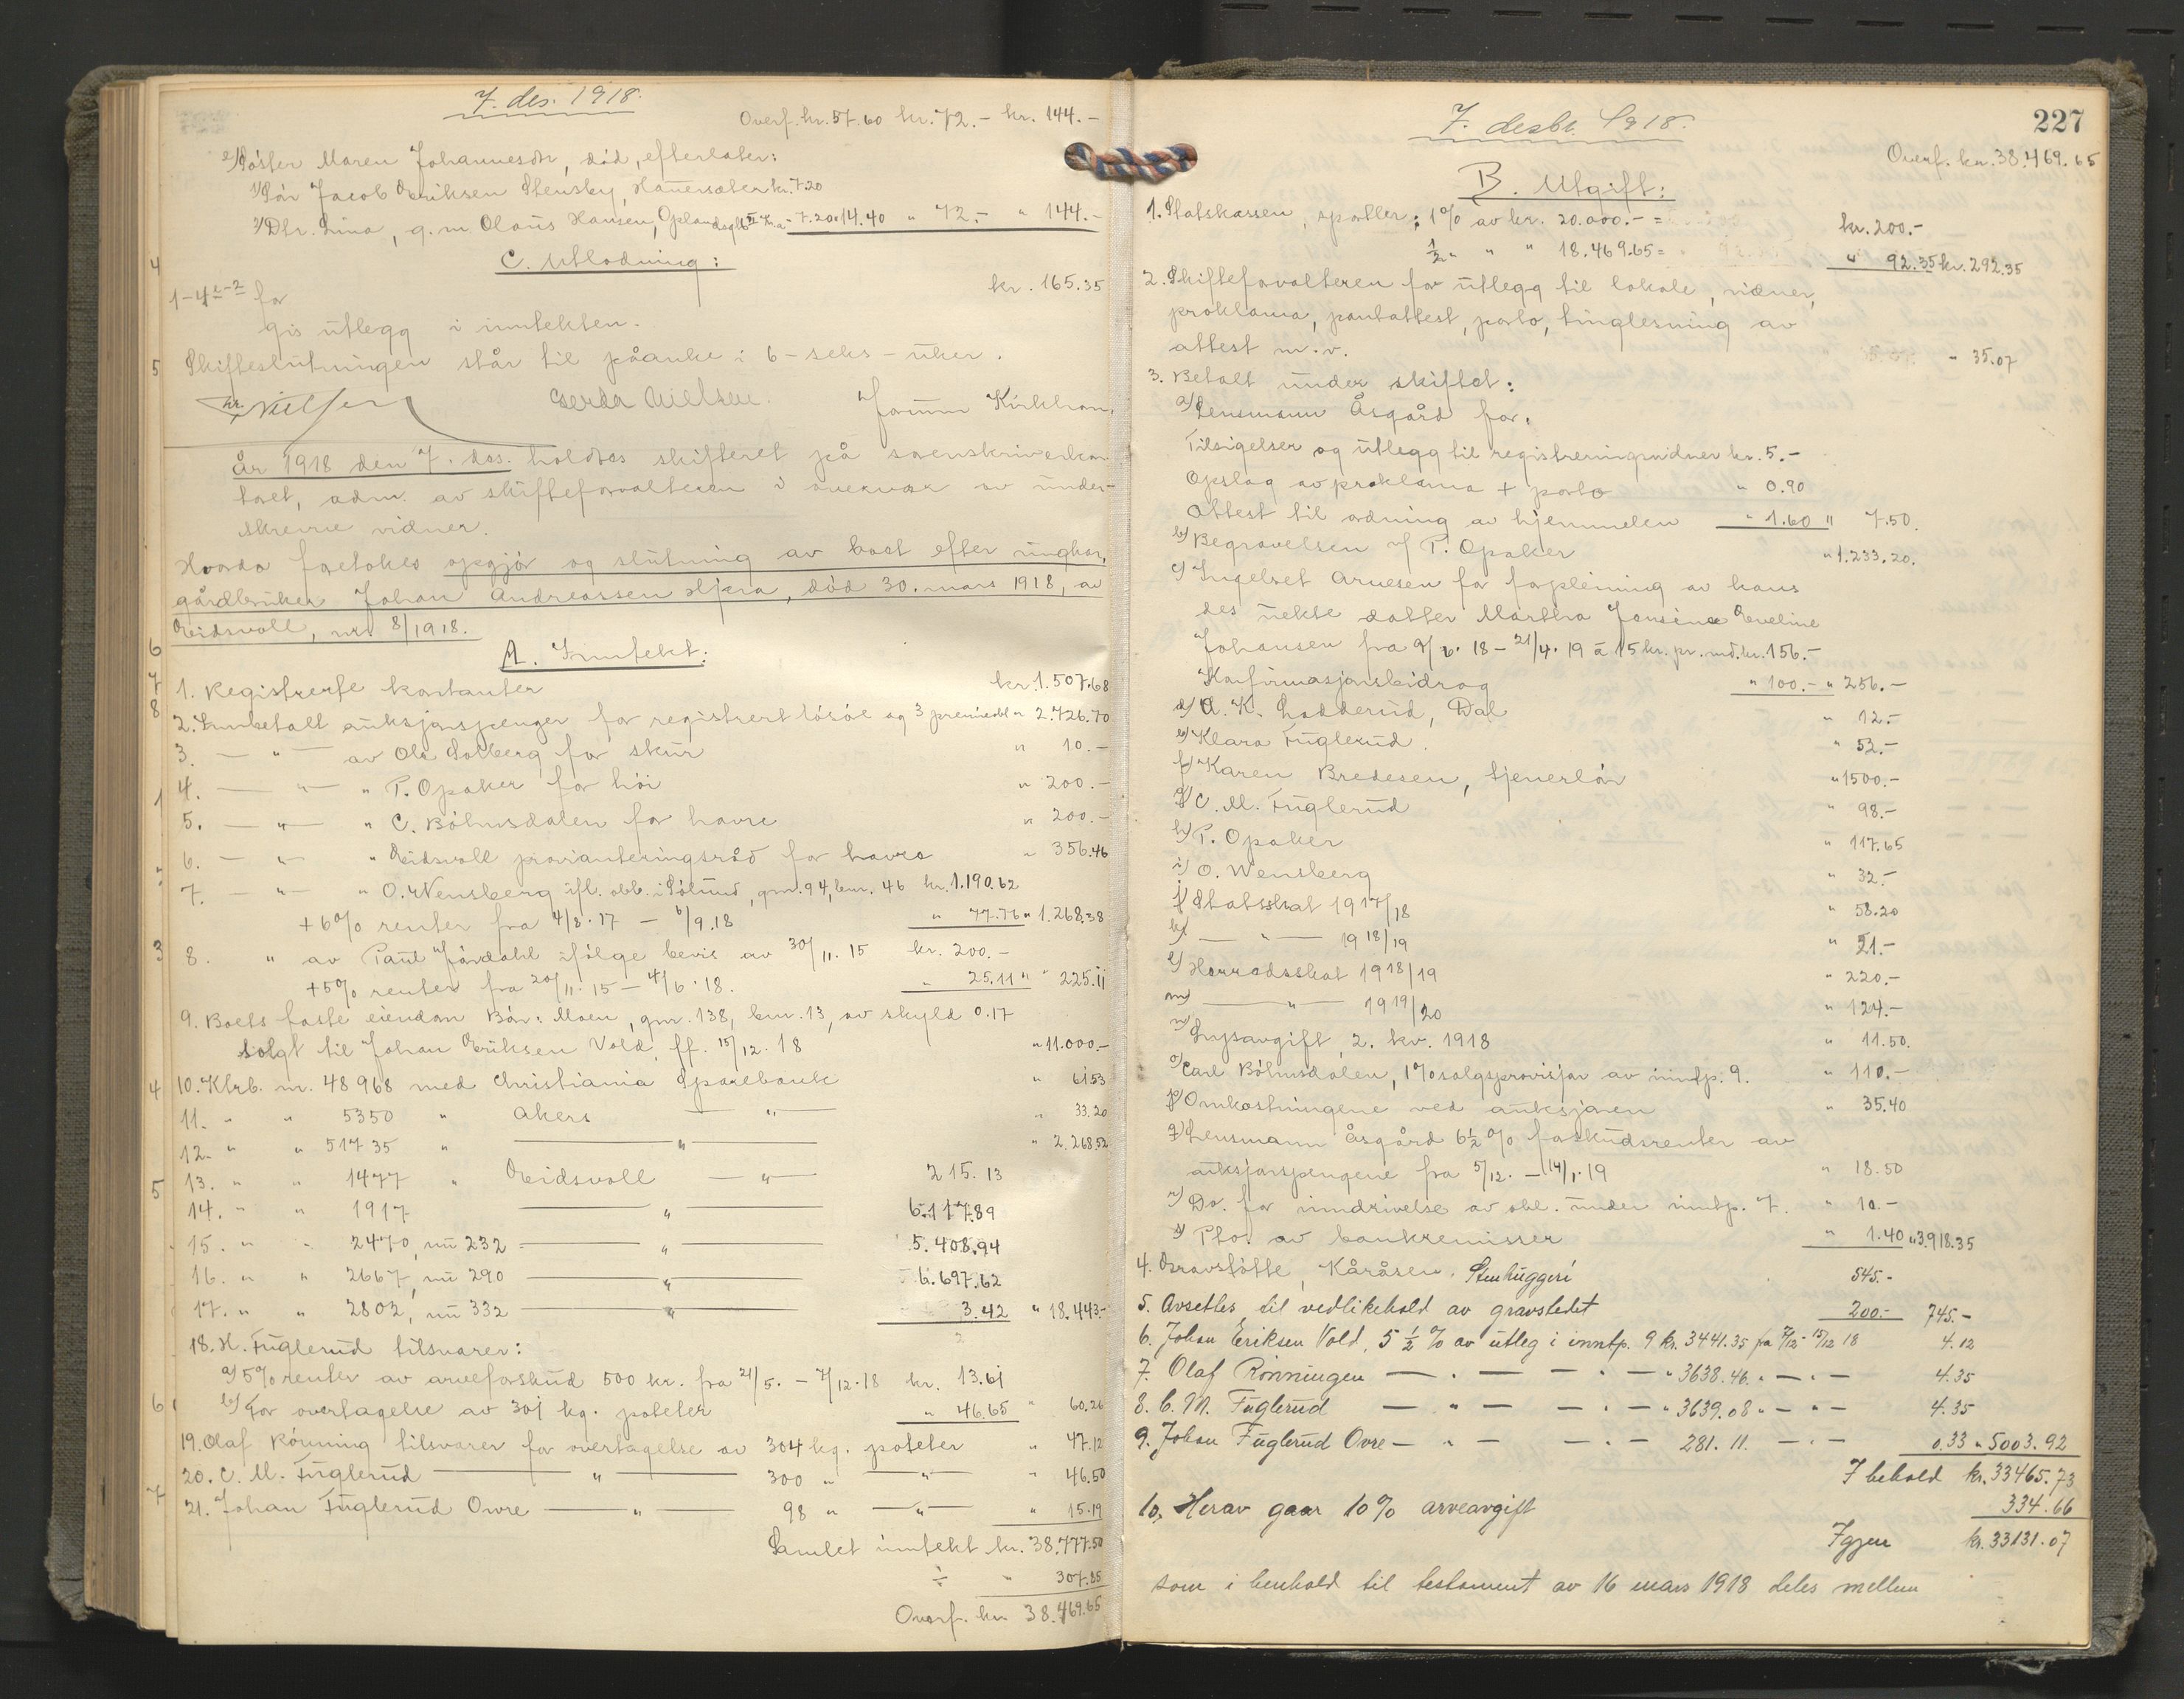 7. des. 1918.
Overf. kr. 57.60 kr. 72.- kr. 144.-
e) Søster Maren Johannesdtr, død, efterlater:
1) Søn Jacob Eriksen Stensby, Hammersæter kr. 7.20
2) Dtr. Lina, g.m. Olaus Hansen, Oplandsgt. 6 II Kr.a - 7.20 " 14.40 " 72.- " 144.-
C. Utlodning:
1-4 e-2 for kr. 165.35
gis utlegg i inntekten.
Skifteslutningen står til påanke i 6 - seks - uker.
Kr. Nielsen Gerda Nielsen. Jomm Kirkhorn.
År 1918 den 7. des. holdtes skifteret på sorenskriverkon-
toret, adm. av skifteforvalteren i overvær av under-
skrevne vidner.
Hvorda foretokes opgjør og slutning av boet efter ungkar,
gårdbruker Johan Andreassen Hjera, død 30. mars 1918, av
Eidsvoll, nr. 8/1918.
A. Inntekt:
1. Registrerte kontanter kr. 1.507.68
2. Innbetalt auksjonspenger for registrert løsøre og 3 premieobl " 2.726.70
3. — " — av Ole Solberg for skur " 10.-
4. — " — " P. Opaker for høi " 200.-
5. — " — " C. Bøhnsdalen for havre " 200.-
6. — " — " Eidsvoll provianteringsråd for havre " 356.46
7. — " — " O. Wensberg ifl. obl. i Sølund, gnr. 94, bnr. 46 kr. 1.190.62
+ 6% renter fra 4/8.17 — 6/9.18 " 77.76 " 1.268.38
8. " av Paul Jørdahl ifølge bevis av 30/11.15 kr. 200.-
+ 5% renter fra 20/11.15 — 4/6.18. " 25.11 " " 225.11
9. Boets faste eiendom Bøn: Moen, gnr. 138, bnr. 13, av skyld 0.17
solgt til Johan Eriksen Vold, ff. 15/12.18 " 11.000.-
10. Ktrb. nr. 48968 med Christiania Sparebank " 61.53
11. " " 5350 " Akers — " — " 33.20
12. " " 51735 " — " — " 2.268.52
13. " " 1477 " Eidsvoll — " — 215.13
14. " " 1917 — " — 6.117.89
15. " " 2470, nu 232 — " — 5.408.94
16. " " 2667, nu 290 — " — 6.697.62
17. " " 2802, nu 332 — " — 3.42 " 18.443.-
18. H. Fuglerud tilsvarer:
a) 5% renter av arveforskud 500 kr. fra 21/5. — 7/12.18 kr. 13.61
b) For overtagelse av 301 kg. poteter " 46.65 " 60.26
19. Olaf Rønning tilsvarer for overtagelse av 304 kg. poteter " 47.12
20. C. M. Fuglerud — " — 300 " — " — " 46.50
21. Johan Fuglerud Ovre — " — 98 " — " — " 15.19
Samlet inntekt kr. 38.777.50
÷ " 307.85
Overf. kr. 38.469.65
7. desbr. 1918.
227
Overf. kr. 38.469.65
B. Utgift:
1. Statskassen, sportler: 1% av kr. 20.000.- = kr. 200.-
1/2 " " " 18.469.65 = " 92.35 kr. 292.35
2. Skifteforvalteren for utlegg til lokale, vidner,
proklama, pantattest, porto, tinglesning av
attest m.v. " 35.07
3. Betalt under skiftet:
a) Lensmann Åsgård for:
Tilsigelser og utlegg til registreringsvidner kr. 5.-
Opslag av proklama + porto " 0.90
Attest til ordning av hjemmelen " 1.60 " 7.50.
b) Begravelsen v/ P. Opaker " 1.233.20.
c) Ingebret Arnesen for forpleining av hans
des uekte datter Martha Jonsine Eveline
Johansen fra 9/6.18 — 21/4.19 à 15 kr. pr. md. kr. 156.-
Konfirmasjonsbidrag " 100.- " 256.-
d) A. K. Lodderud, Dal " 12.-
e) Klara Fuglerud. " 52.-
f) Karen Bredesen, tjenerløn " 1500.-
g) C. M. Fuglerud " 98.-
h) P. Opaker " 117.65
i) O. Wensberg " 32.-
j) Statsskat 1917/18 " 58.20
k) — " — 1918/19 " 21.-
l) Herradsskat 1918/19 " 220.-
m) — " — 1919/20 " 124.-
n) Lysavgift, 2. kv. 1918 " 11.50.
o) Carl Bøhnsdalen, 1% salgsprovisjon av inntp. 9. " 110.-
p) Omkostningene ved auksjonen " 35.40
q) Lensmann Åsgård 6 1/2 % forskudsrenter av
auksjonspengene fra 5/12. — 14/1.19 " 18.50
r) Do. for inndrivelse av obl. under inntp. 7. " 10.-
s) Pto. av bankremisser " 1.40 " 3.918.35
4. Gravstøtte, Kåråsen. Stenhuggeri 545.-
5. Avsettes til vedlikehold av gravstedet 200.- 745.-
6. Johan Eriksen Vold, 5 1/2 % av utleg i inntp. 9 kr. 3441.35 fra 7/12 - 15/12 18 4.12
7. Olaf Rønningen — " — — " — " 3638.46. " — " — 4.35
8. C. M. Fuglerud — " — — " — " 3639.08 " — " — 4.35
9. Johan Fuglerud Ovre — " — — " — 281.11. — " — 0.33 " 5003.92
I behold kr. 33465.73
10. Herav gaar 10% arveavgift 334.66
Igjen kr. 33131.07
som i henhold til testament av 16 mars 1918 deles mellem